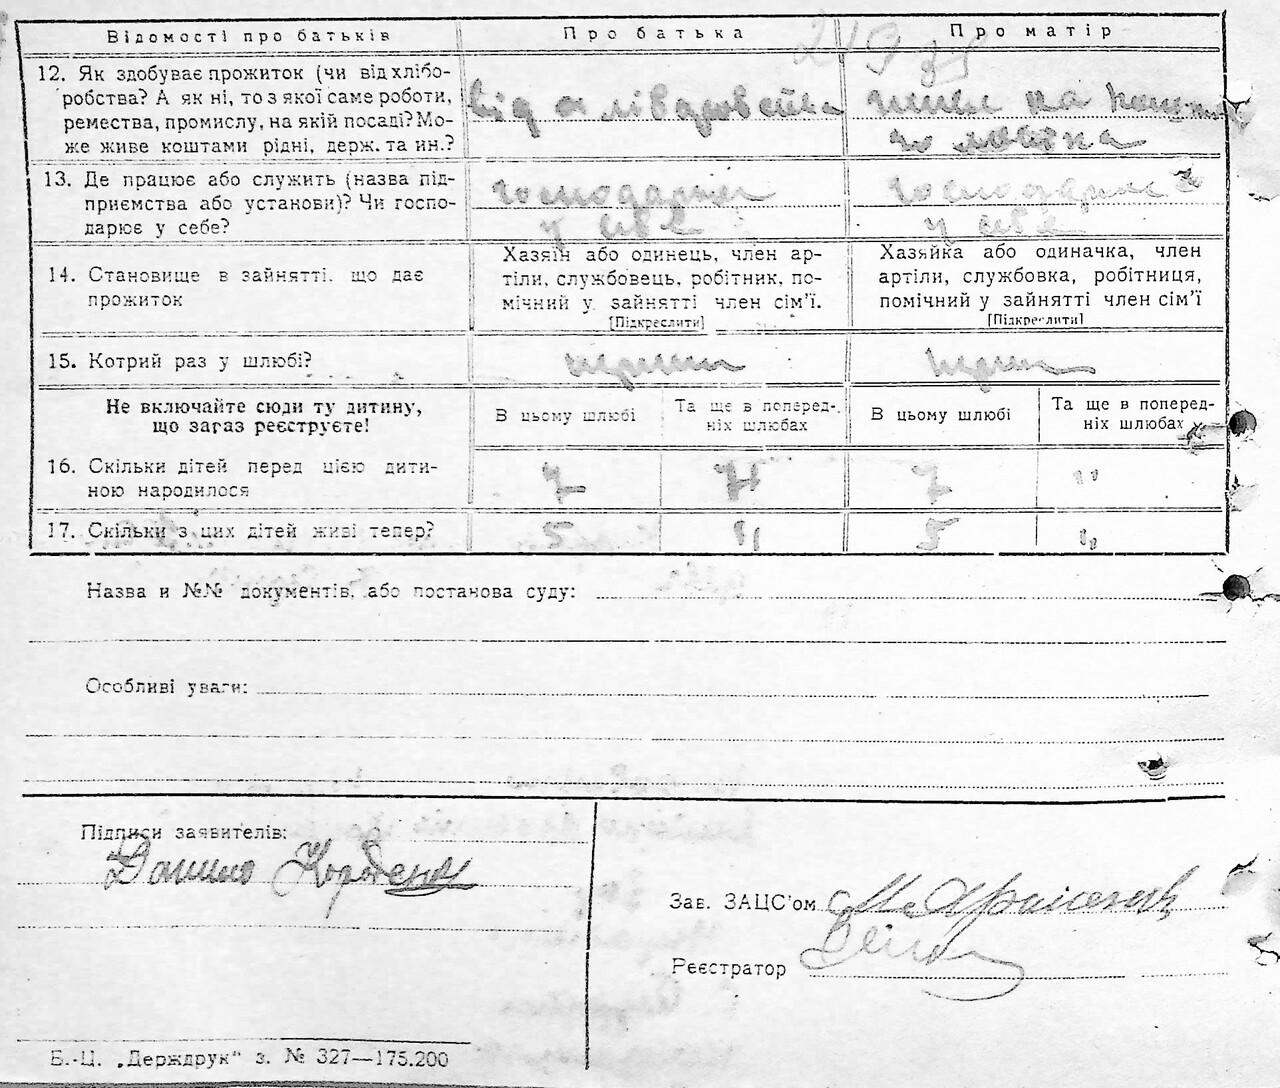 Відомості про батьків
Про батька
Про матір
12. Як здобуває прожиток (чи від хлібо-
робства? А як ні, то з якої саме роботи,
ремества, промислу, на якій посаді? Мо-
же живе коштами рідні, держ. та ин.?
від
на
чоловіка
13. Де працює або служить (назва під-
приємства або установи)? Чи госпо-
дарює у себе?
господарює
у себе
господарює
у себе
14. Становище в зайнятті, що дає
прожиток
Хазяїн або одинець, член ар-
тіли, службовець, робітник, по-
мічний у зайнятті член сім’ї.
[Підкреслити]
Хазяйка або одиначка, член
артіли, службовка, робітниця,
помічний у зайнятті член сім’ї
[Підкреслити]
15. Котрий раз у шлюбі?
Не включайте сюди ту дитину,
що зараз реєструєте!
В цьому шлюбі
Та ще в поперед-
ніх шлюбах
В цьому шлюбі
Та ще в поперед-
ніх шлюбах
16. Скільки дітей перед цією дити-
ною народилося
7
7
"
17. Скільки з цих дітей живі тепер?
5
"
5
"
Назва и №№ документів, або постанова суду:
Особливі уваги:
Підписи заявителів:
Данило
Зав. ЗАЦС’ом
Реєстратор
Б.-Ц. „Держдрук“ з. № 327—175.200